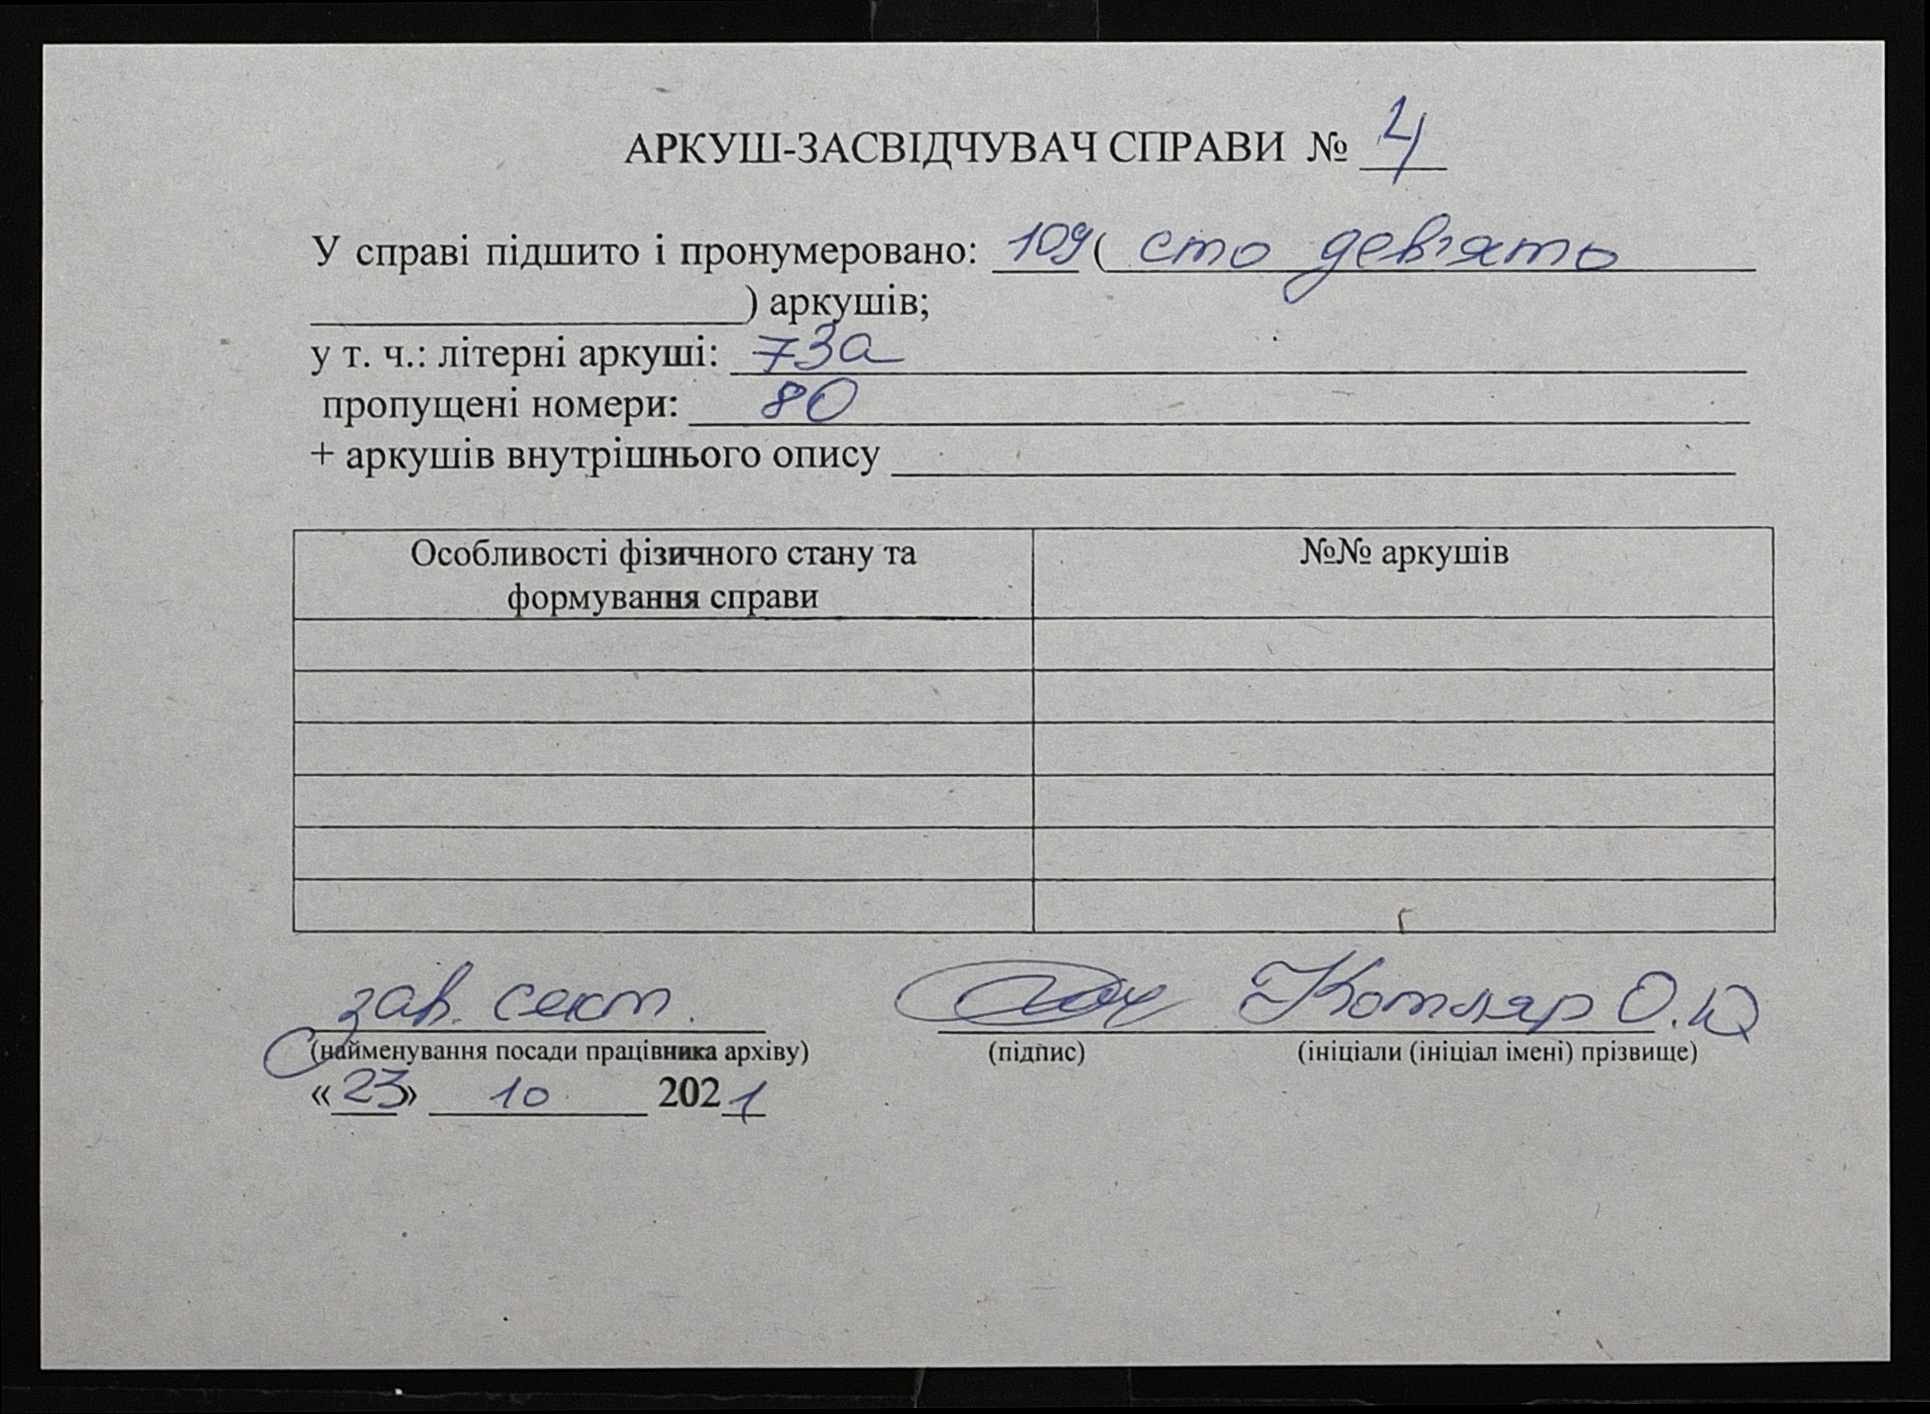 АРКУШ-ЗАСВІДЧУВАЧ СПРАВИ № 4
У справі підшито і пронумеровано: 109 ( сто дев'ять
) аркушів;
у т. ч.: літерні аркуші: 73а
пропущені номери: 80
+ аркушів внутрішнього опису
Особливості фізичного стану та формування справи
№№ аркушів
зав. сект. Котляр О.Ю
(найменування посади працівника архіву) (підпис) (ініціали (ініціал імені) прізвище)
«23» 10 2021